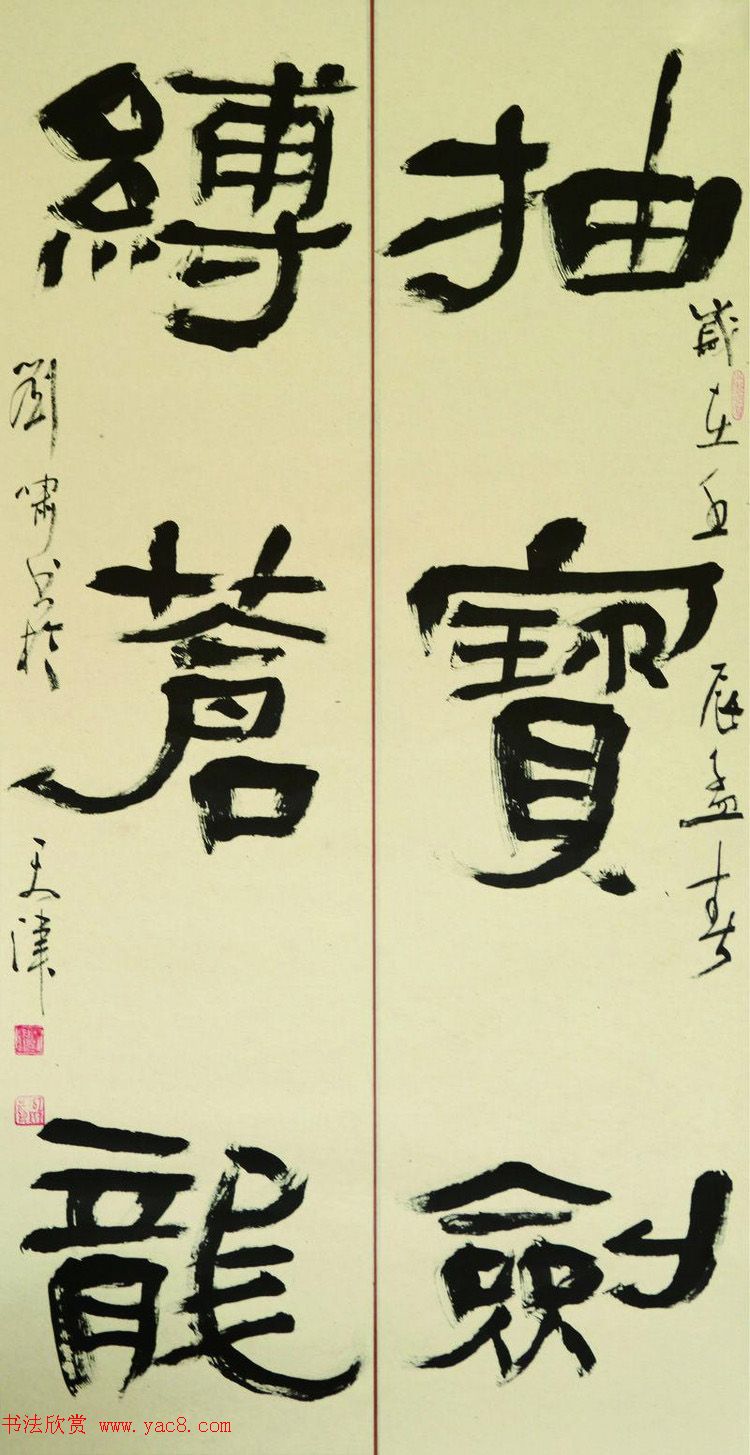 抽寶劍
歲在壬辰孟春
縛蒼龍
劉嘯書於天津
书法欣赏 www.yac8.com